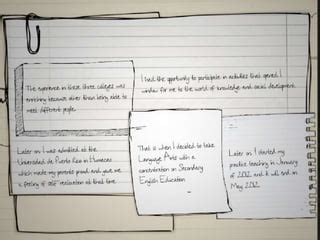 The experience in these three colleges was
enriching because other than being able to
meet different people,
I had the opportunity to participate in activities that opened a
window for me to the world of knowledge and social development.
Later on I was admitted at the
Universidad de Puerto Rico in Humacao
which made my parents proud and gave me
a feeling of self realization at that time.
That is when I decided to take
Language Arts with a
concentration in Secondary
English Education
Later on I started my
practice teaching in January
of 2012 and it will end in
May 2012.